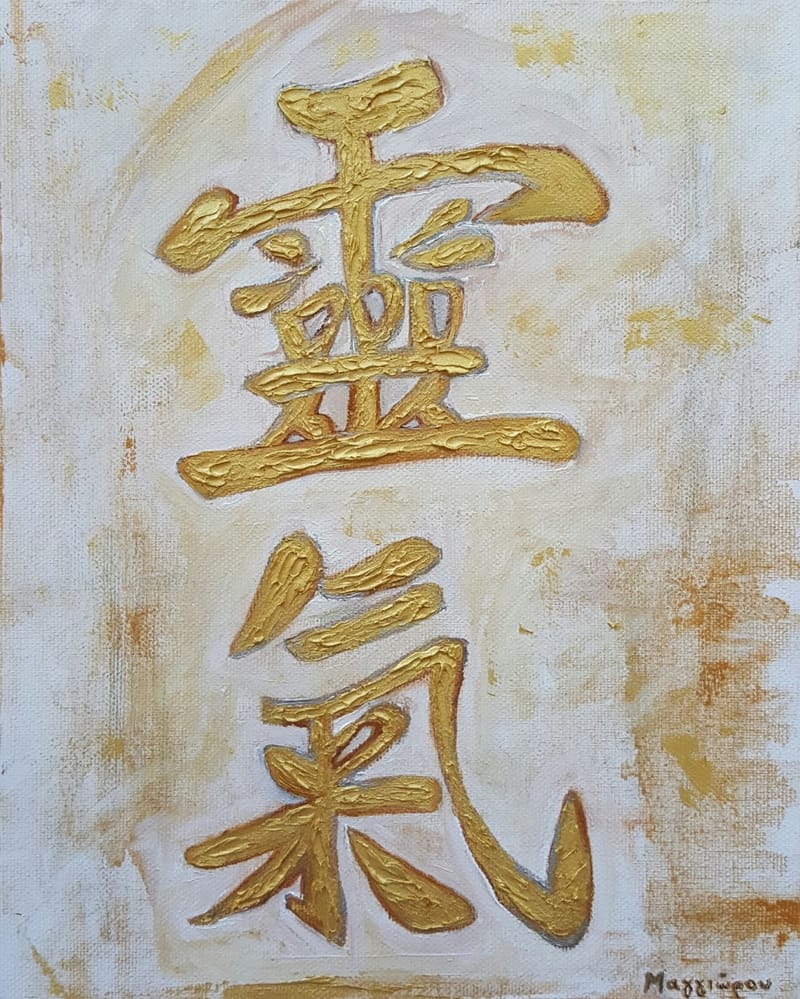 靈
氣
Μαγγιώρου